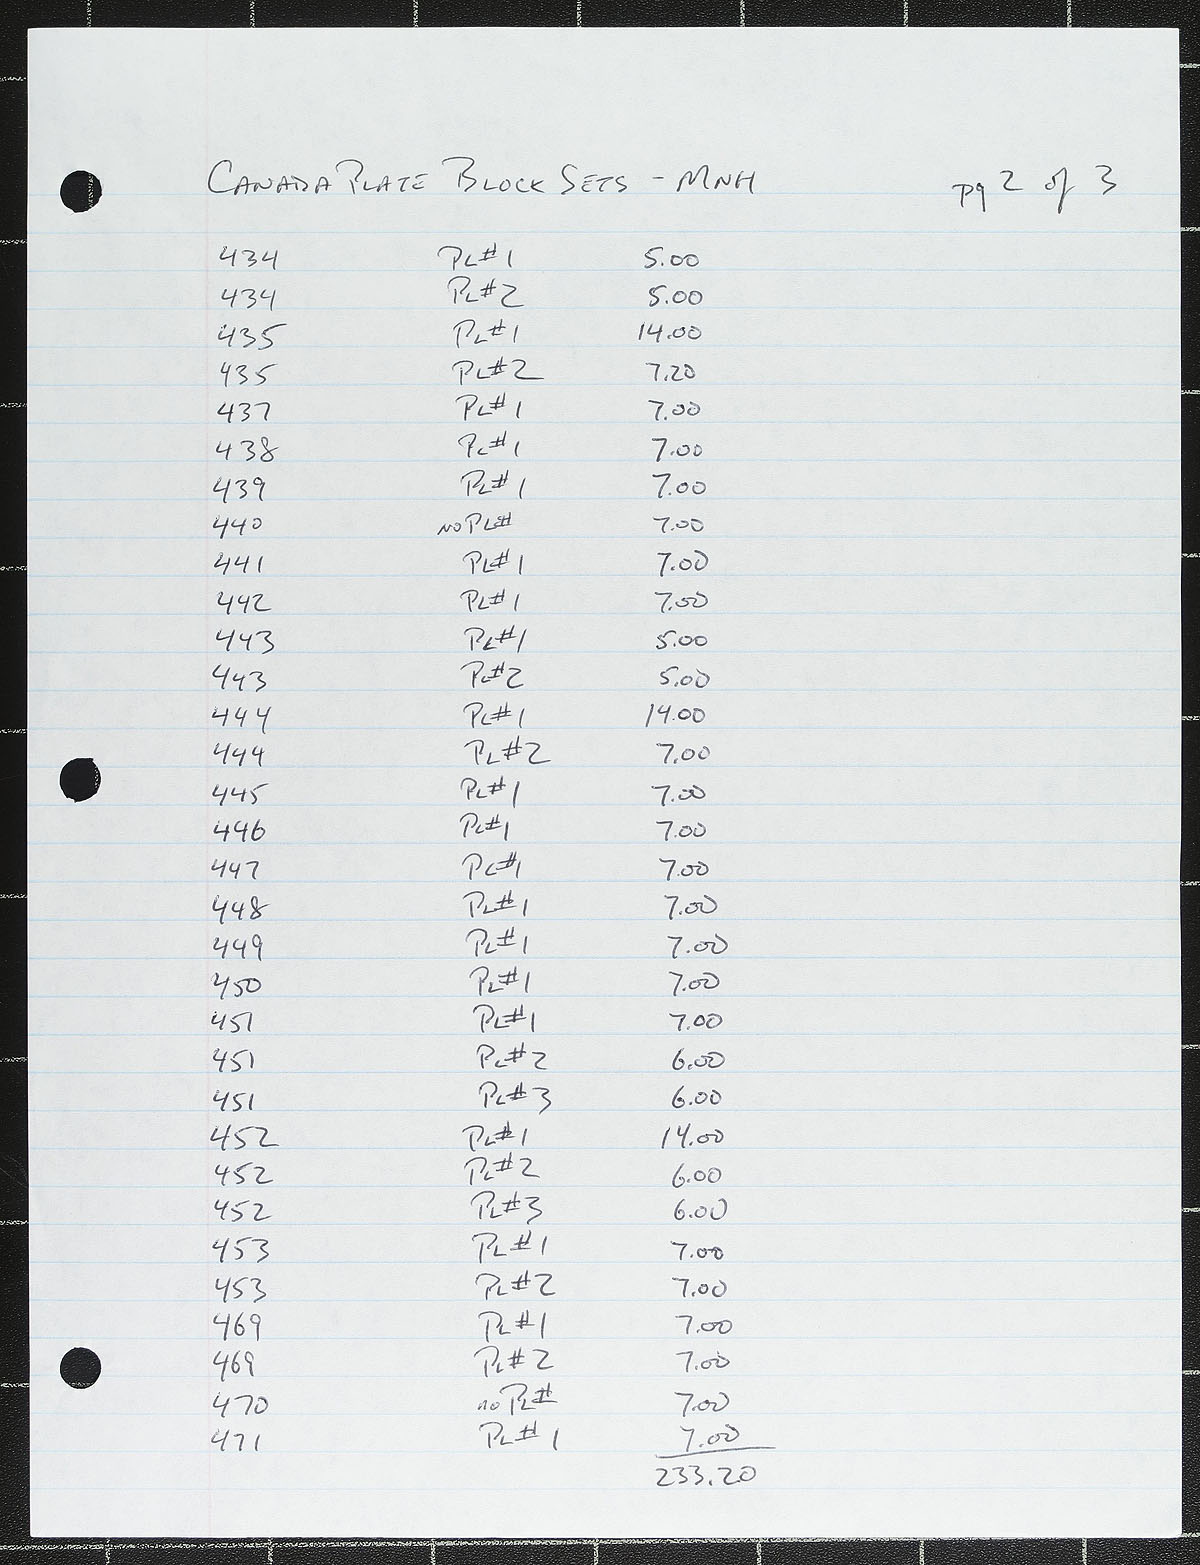 CANADA PLATE BLOCK SETS - MNH pg 2 of 3
434 PL#1 5.00
434 PL#2 5.00
435 PL#1 14.00
435 PL#2 7.20
437 PL#1 7.00
438 PL#1 7.00
439 PL#1 7.00
440 NO PL# 7.00
441 PL#1 7.00
442 PL#1 7.00
443 PL#1 5.00
443 PL#2 5.00
444 PL#1 14.00
444 PL#2 7.00
445 PL#1 7.00
446 PL#1 7.00
447 PL#1 7.00
448 PL#1 7.00
449 PL#1 7.00
450 PL#1 7.00
451 PL#1 7.00
451 PL#2 6.00
451 PL#3 6.00
452 PL#1 14.00
452 PL#2 6.00
452 PL#3 6.00
453 PL#1 7.00
453 PL#2 7.00
469 PL#1 7.00
469 PL#2 7.00
470 no PL# 7.00
471 PL#1 7.00
233.20